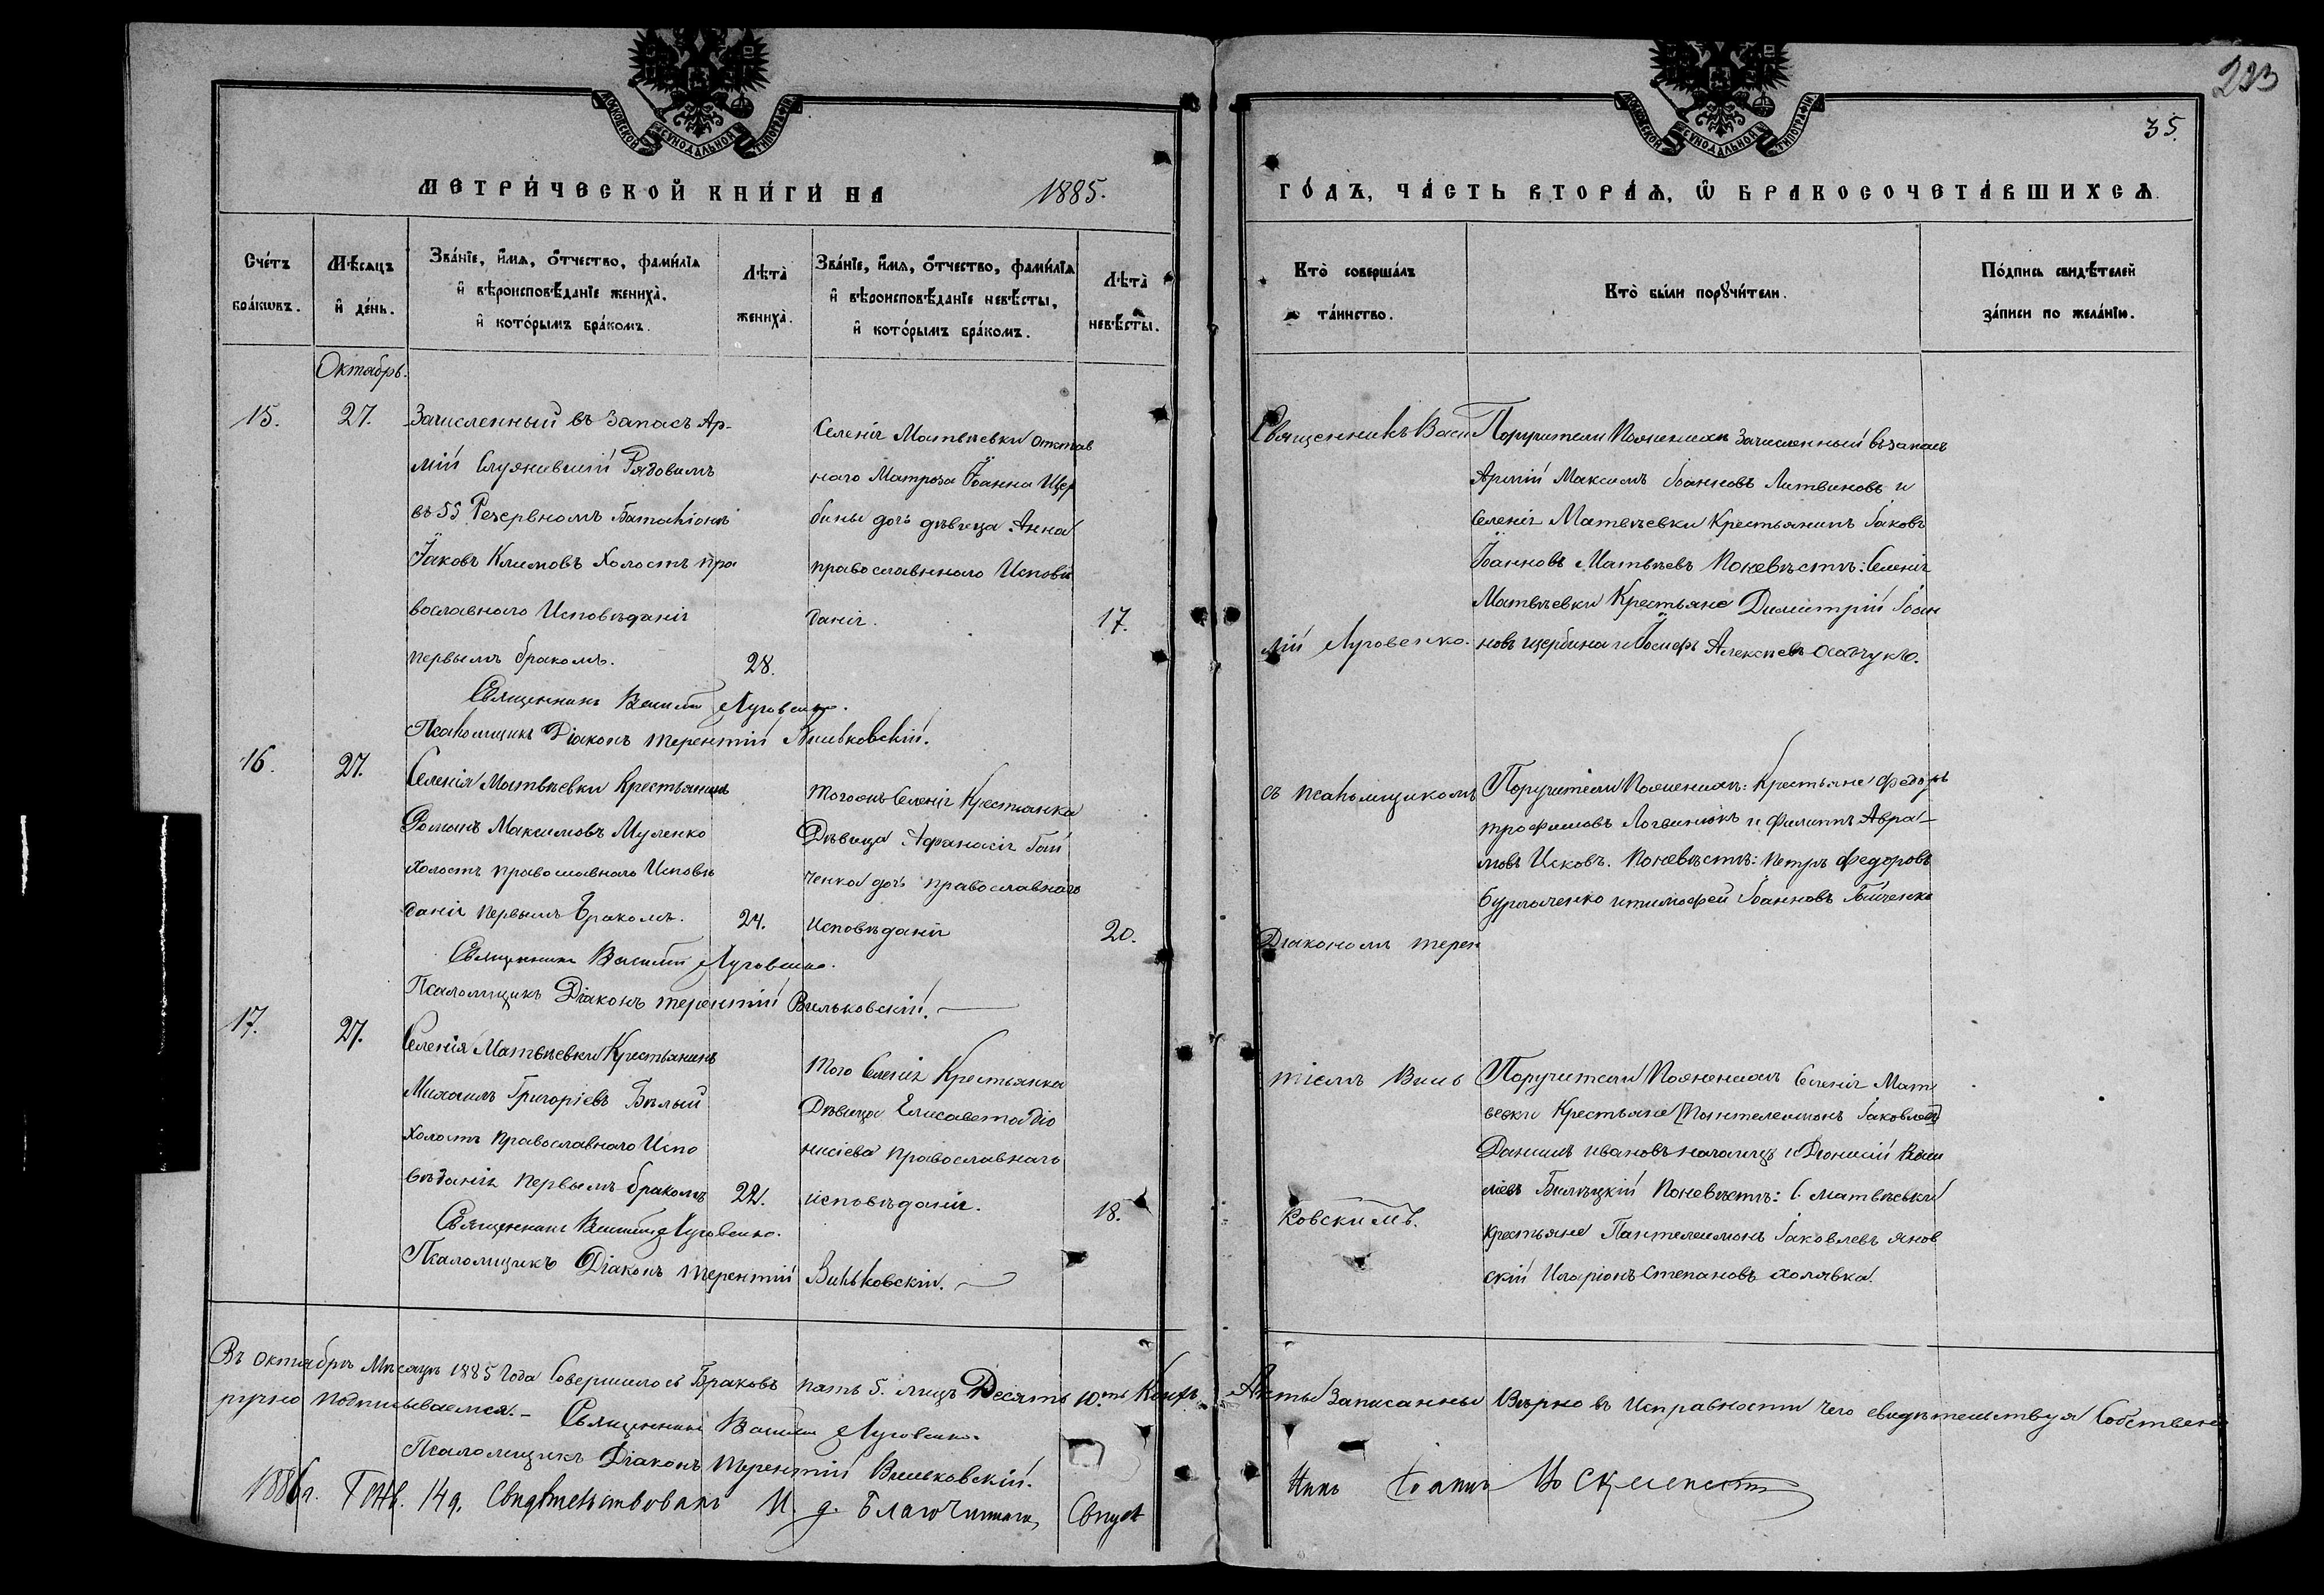 233
35.
МОСКОВСКОЙ СѴНОДАЛЬНОЙ ТИПОГРАФІИ
МОСКОВСКОЙ СѴНОДАЛЬНОЙ ТИПОГРАФІИ
МЕТРИ́ЧЕСКОЙ КНИ́ГИ НА 1885. ГО́ДЪ, ЧА́СТЬ ВТОРА́Ѧ, Ѡ БРАКОСОЧЕТА́ВШИХСѦ.
Сче́тъ бра́кѡвъ.
Мѣ́сѧцъ и҆ де́нь.
Зва́нїе, и҆́мѧ, ѻ҆́тчество, фами́лїѧ и҆ вѣроисповѣ́данїе жениха̀, и҆ кото́рымъ бра́комъ.
Лѣта̀ жениха̀.
Зва́нїе, и҆́мѧ, ѻ҆́тчество, фами́лїѧ и҆ вѣроисповѣ́данїе невѣ́сты, и҆ кото́рымъ бра́комъ.
Лѣта̀ невѣ́сты.
Кто̀ соверша́лъ та́инство.
Кто̀ бы́ли порꙋчи́тели.
По́дпись свидѣ́телей за́писи по жела́нїю.
Октябрь.
15.
27.
Зачисленный въ Запасъ Ар-
міи Служившій Рядовымъ
въ 55 Резервномъ Баталіонѣ
Іаковъ Климовъ Холостъ пра
вославнаго Исповѣданія
первымъ бракомъ.
28.
Селенія Матвѣевки отстав
наго Матроза Іоанна Щер
бины дочь дѣвица Анна
православннаго Исповѣ
данія.
17.
Священникъ Васи
лій Луговенко.
Поручители Поженихѣ Зачисленный въ запасъ
Арміи Максимъ Іоанновъ Литвиновъ и
Селенія Матвѣевки Крестьянинъ Іаковъ
Іоанновъ Матвѣевъ Поневѣстѣ: Селенія
Матвѣевки Крестьяне Димитрій Іоан
новъ щербина и Іосифъ Алексѣевъ
Священникъ Василій Луговенко.
Псаломщикъ Діаконъ терентій Вильковскій.
16.
27.
Селенія Матвѣевки Крестьянинъ
Романъ Максимовъ Муленко
холостъ православнаго Исповѣ
данія первымъ бракомъ.
24.
тогожъ Селенія Крестьянка
Дѣвица Афанасія Гай
ченка дочь православнаго
исповѣданія
20.
съ псаломщикомъ
Діакономъ терен
Поручители Поженихѣ: Крестьяне Федоръ
трофимовъ Логвинюкъ и Филиппъ Авра-
мовъ Исковъ. Поневѣстѣ: Петръ Федоровъ
Бурлаченко итимофей Іоанновъ
Священникъ Василій Луговенко.
Псаломщикъ Діаконъ терентій Вильковскій.
17.
27.
Селенія Матвѣевки Крестьянинъ
Михаилъ Григоріевъ Бѣлый
холостъ православнаго Испо
вѣданія первымъ бракомъ
22.
того Селенія Крестьянка
Дѣвица Елисавета Діо
нисіева православнаго
исповѣданія.
18.
тіемъ Виль
ковскимъ.
Поручители Поженихѣ Селенія Матв
ѣевки Крестьяне [Пантелеимонъ Іаковлевъ]
Даниилъ ивановъ и Діонисій Васи
ліевъ Билецкій Поневѣстѣ: С. Матвѣевки
крестьяне Пантелеимонъ Іаковлевъ янов
скій Иларіонъ Степановъ холявка.
Священникъ Василій Луговенко.
Псаломщикъ Діаконъ терентій Вильковскій.
Въ октябрѣ Мѣсяцѣ 1885 Года Совершилось Браковъ пять 5. лицъ Десять 10.ть Акты Записанны Вѣрно въ Исправности чего свидѣтельствуя Собствено
ручно подписываемся.- Священникъ Василій Луговенко.
Псаломщикъ Діаконъ Терентій Вильковскій.
1886 г. Генв. 14 д. Свидѣтельствовалъ И. д. Благочиннаго, Свящ
никъ Іоаннъ